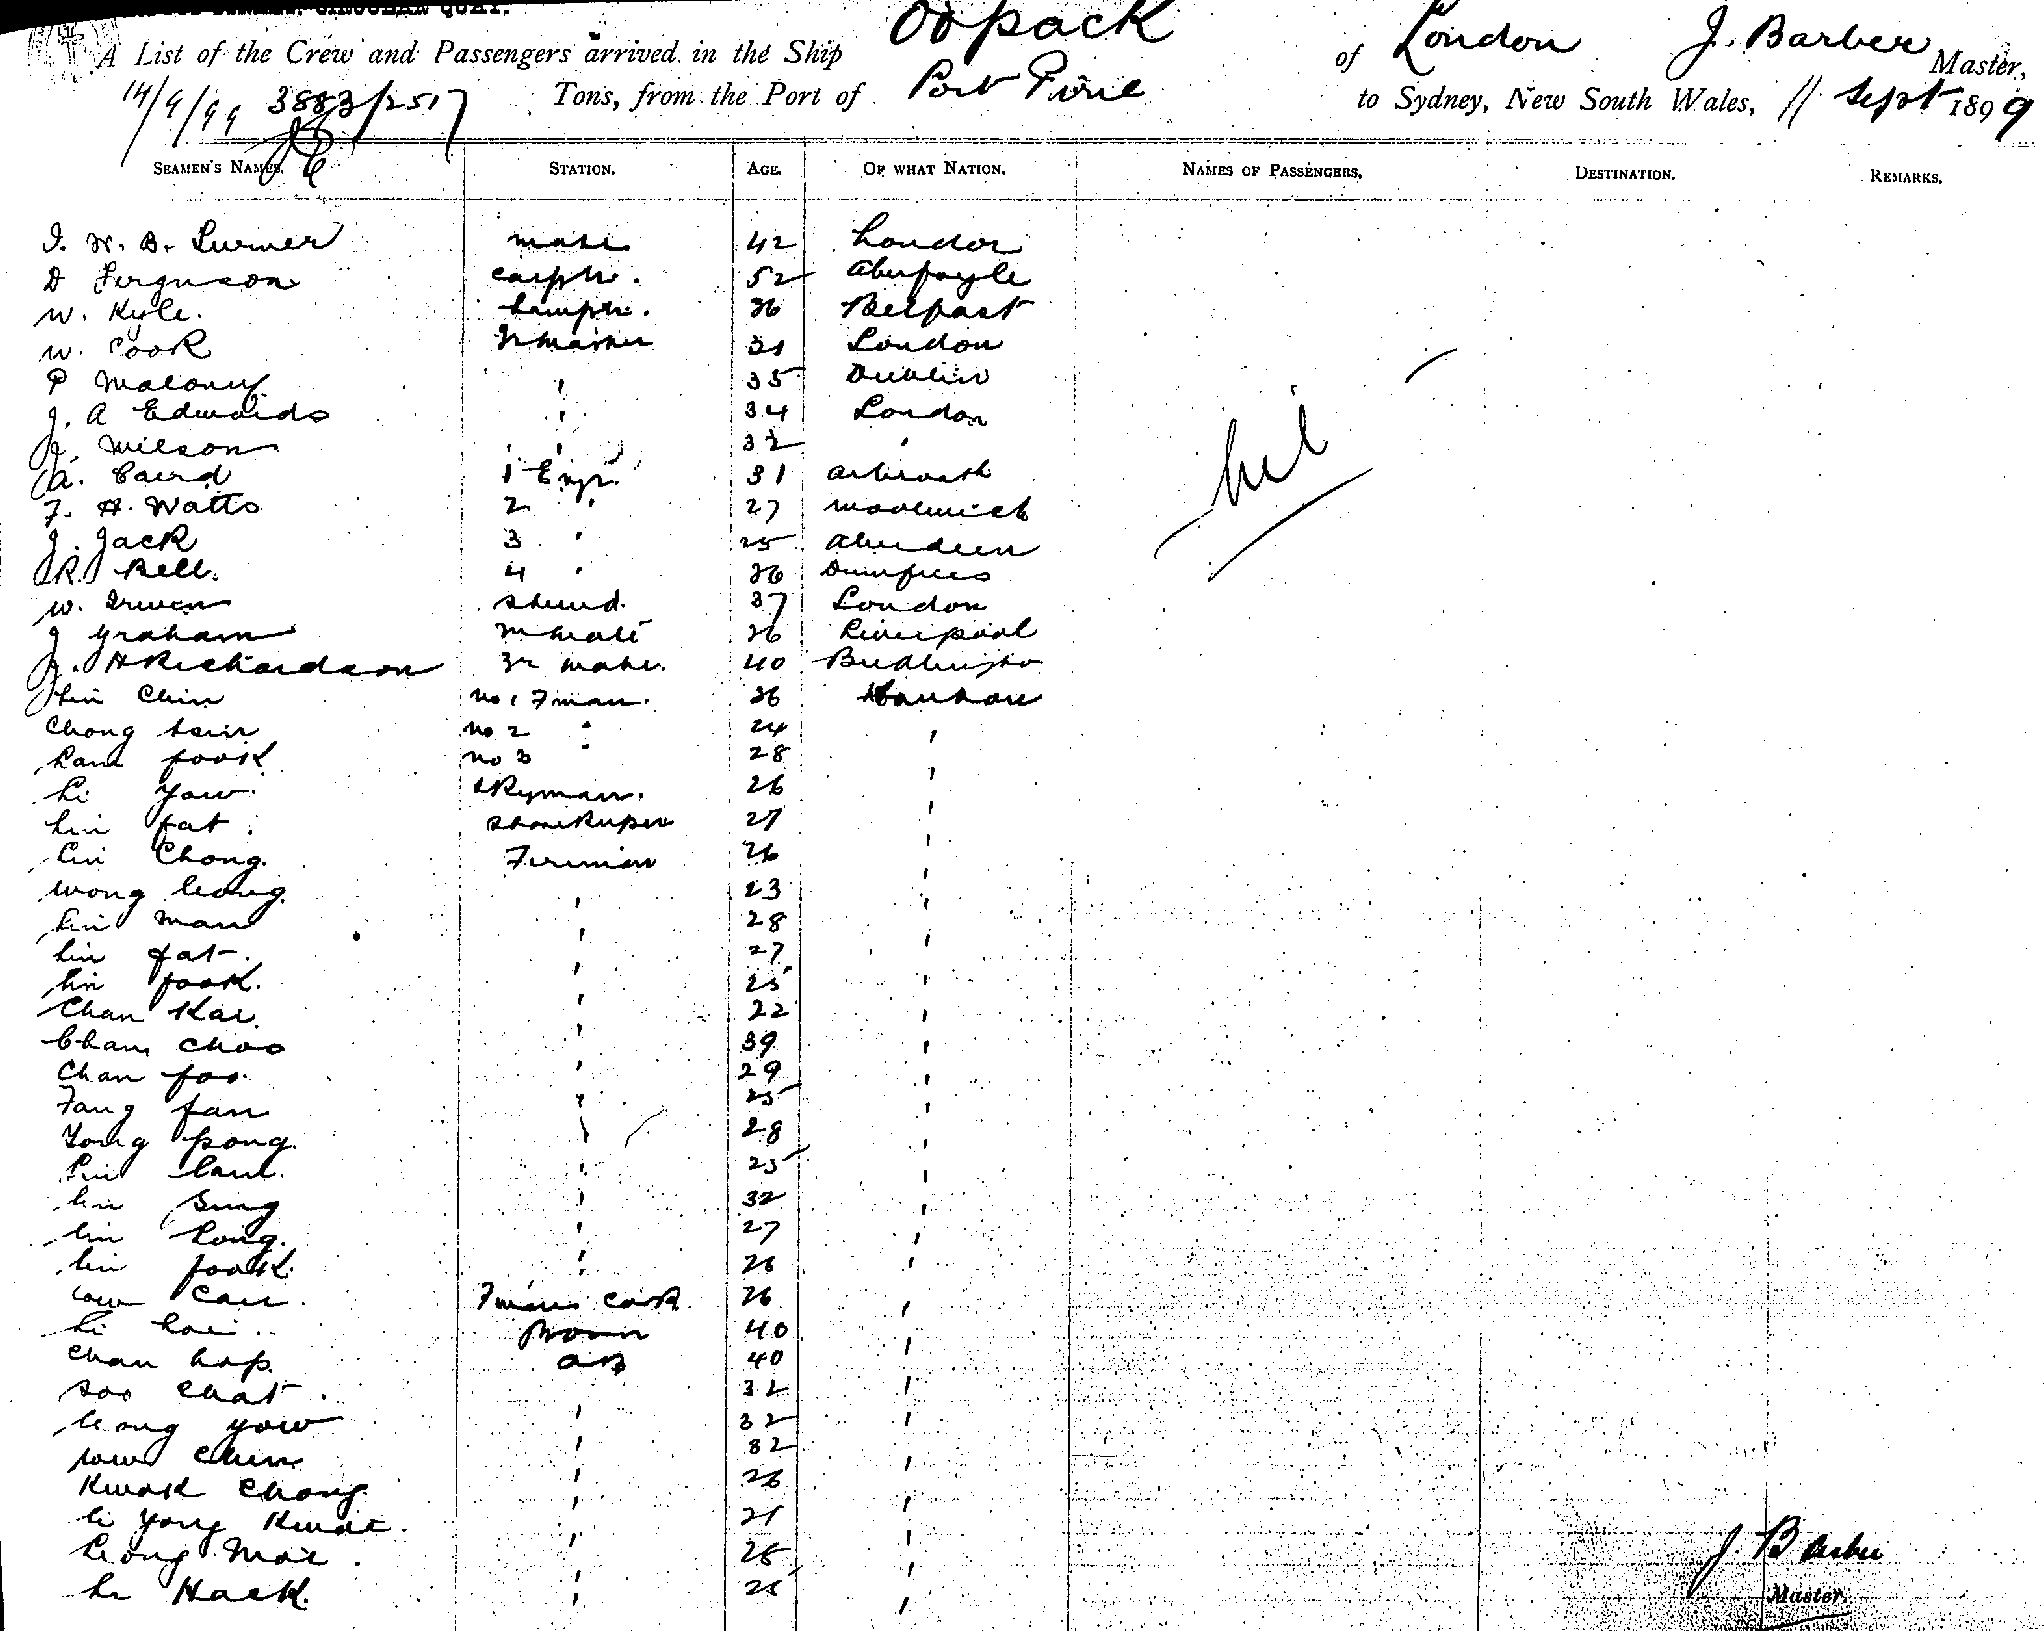 CIRCULAR QUAY.
A List of the Crew and Passengers arrived in the Ship Oopack of London J. Barber Master,
14/9/99 3883/2517 Tons, from the Port of Port Pirie to Sydney, New South Wales, 11 Sept 1899
SEAMEN'S NAMES. STATION. AGE. OF WHAT NATION. NAMES OF PASSENGERS. DESTINATION. REMARKS.
B. 42 London
D Ferguson 52 Aberfoyle
W. Kyle. Lamptr. 36 Belfast
W. Cook 31 London
P Maloney " 35 Dublin
J. A Edwards " 34 London
J. Wilson " 32 "
A. Caird 1 Engr. 31 Arbroath
F. H. Watts 2 " 27 Woolwich
J. Jack 3 " 25 Aberdeen
R. Bell. 4 " 26 Dumfries
W. 37 London
J Graham 26 Liverpool
J. H Richardson 40
Chin no 1 Fman. 26
Chong no 2 " 24 "
Lam fook no 3 " 28 "
Li Yow 26 "
Lin fat. Storekeeper 27 "
Lin Chong. Fireman 26 "
Wong Leong. " 23 "
Lin Man " 28 "
Lin fat. " 27 "
Lin fook. " 25 "
Chan Kai. " 22 "
Cham Choo " 39 "
Chan foo. " 29 "
Fang fan " 25 "
Yong pong. " 28 "
Lin " 25 "
Lin Sing " 32 "
Lin Long. " 27 "
Lin fook. " 26 "
Fmans Cook 26 "
Li Hoi 40 "
Chan hop. AB 40 "
Soo Chat. " 32 "
Leong Yow " 32 "
" 32 "
Kwok Chong " 26 "
Li Yong " 21 "
Leong " 25 "
Li Hack. " 25 "
nil
J. Barber
Master.